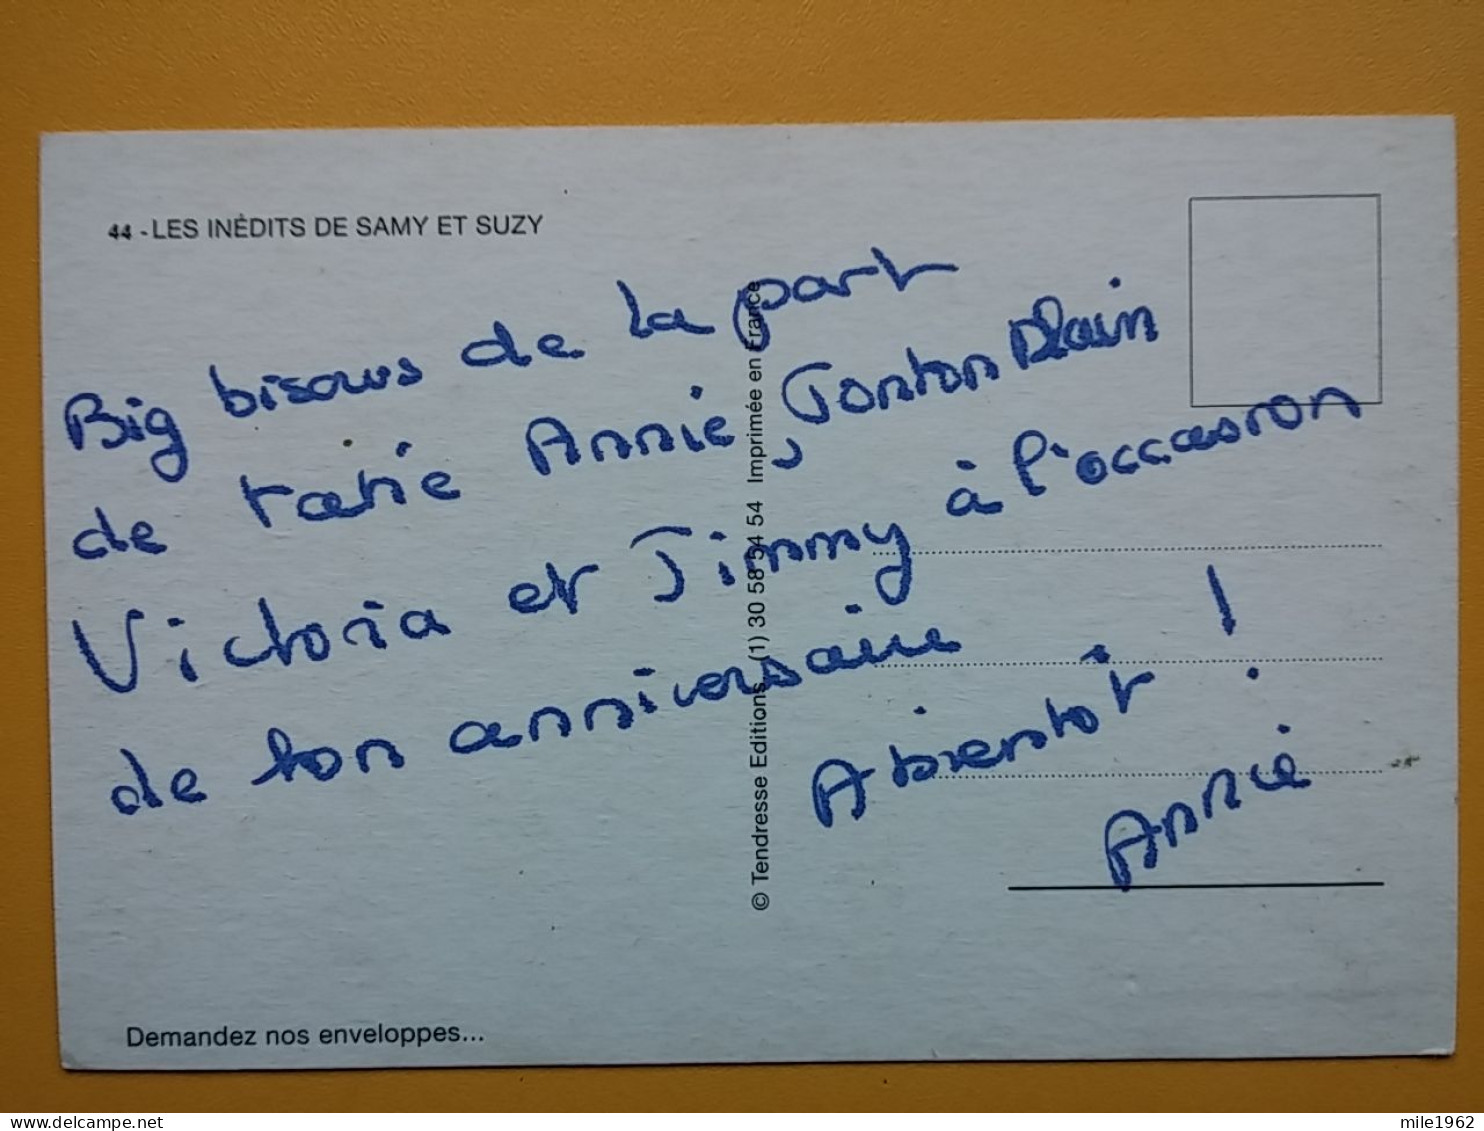 44 - LES INÉDITS DE SAMY ET SUZY
Big bisous de la part
de tatie Annie, Tonton Alain
Victoria et Jimmy à l'occasion
de ton anniversaire
A bientôt !
Annie
© Tendresse Editions (1) 30 58 54 54 Imprimée en France
Demandez nos enveloppes...
mile1962